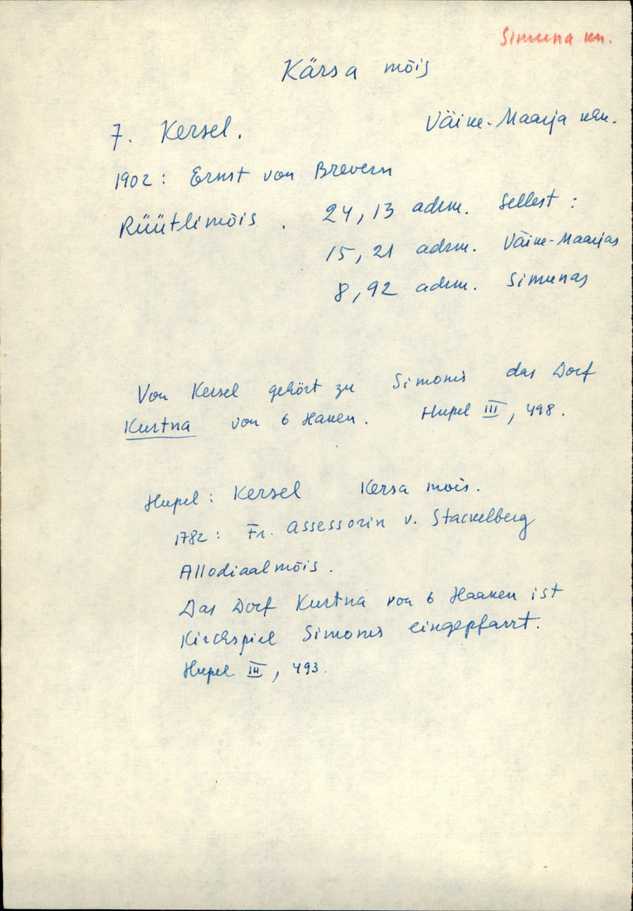 Simuna kn.
Kärsa mõis
7. Kersel. Väike-Maarja khn.
1902: Ernst von Brevern
Rüütlimõis. 24,13 adrm. Sellest:
15,21 adrm. Väike-Maarjas
8,92 adrm. Simunas
Von Kersel gehört zu Simonis das Dorf
Kurtna von 6 Haken. Hupel III, 498.
Hupel: Kersel Kersa mois.
1782: Fr. Assessorin v. Stackelberg
Allodiaalmõis.
Das Dorf Kurtna von 6 Haaken ist
Kirchspiel Simonis eingepfarrt.
Hupel III, 493.